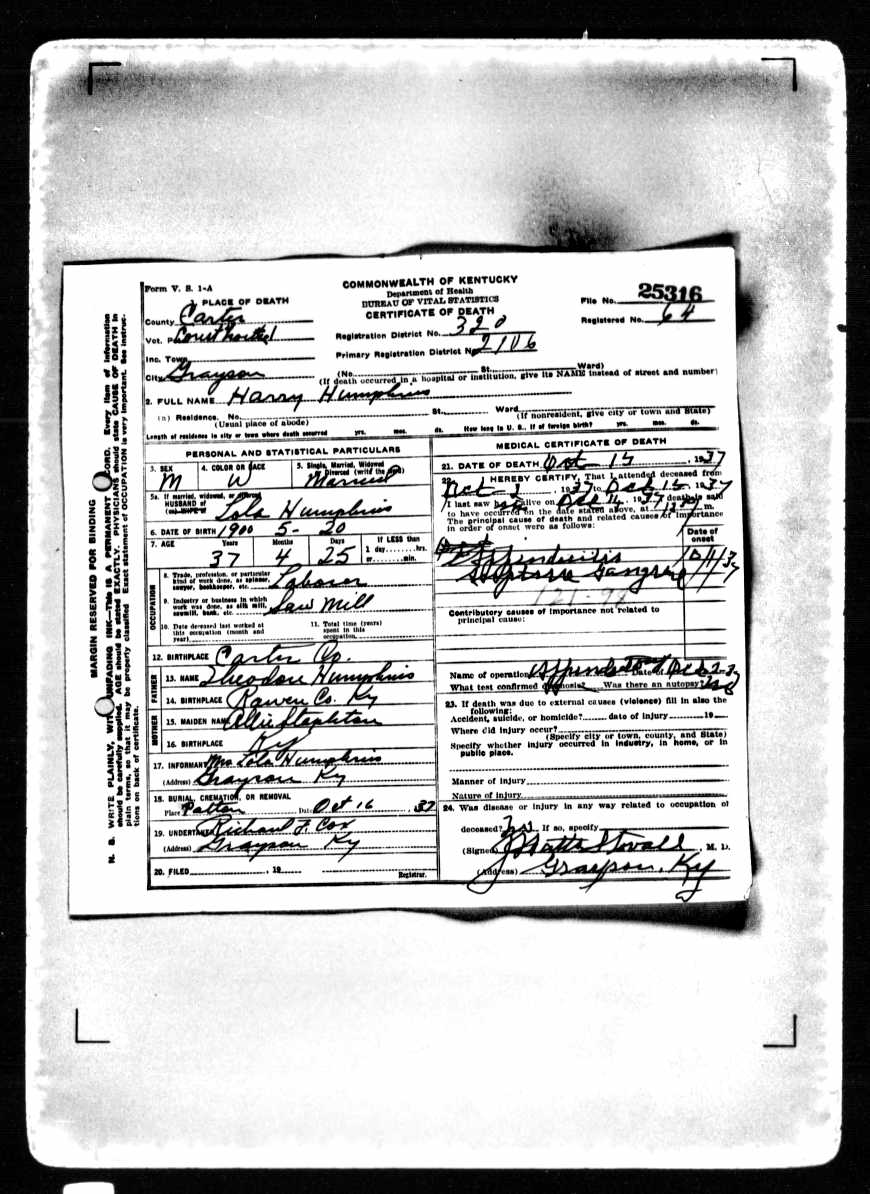 Form V. S. 1-A
COMMONWEALTH OF KENTUCKY
Department of Health
BUREAU OF VITAL STATISTICS
CERTIFICATE OF DEATH
File No. 25316
Registered No. 64
PLACE OF DEATH
County Carter
Vot. P
Inc. Town
City Grayson
Registration District No. 320
Primary Registration District No. 2106
(No. St. Ward)
(If death occurred in a hospital or institution, give its NAME instead of street and number)
2. FULL NAME Harry Humphries
(a) Residence. No. St. Ward
(Usual place of abode) (If nonresident, give city or town and State)
Length of residence in city or town where death occurred yrs. mos. ds. How long in U. S., if of foreign birth? yrs. mos. ds.
PERSONAL AND STATISTICAL PARTICULARS
3. SEX M
4. COLOR OR RACE W
5. Single, Married, Widowed or Divorced (write the word) Married
5a. If married, widowed, or divorced
HUSBAND of
(or) WIFE of Lola Humphries
6. DATE OF BIRTH 1900 5- 20
7. AGE Years 37 Months 4 Days 25 If LESS than 1 day hrs. or min.
OCCUPATION
8. Trade, profession, or particular kind of work done, as spinner, sawyer, bookkeeper, etc. Laborer
9. Industry or business in which work was done, as silk mill, sawmill, bank, etc. Saw Mill
10. Date deceased last worked at this occupation (month and year)
11. Total time (years) spent in this occupation
12. BIRTHPLACE Carter Co.
FATHER
13. NAME Theodore Humphries
14. BIRTHPLACE Rowen Co. Ky
MOTHER
15. MAIDEN NAME Allie Stapleton
16. BIRTHPLACE Ky
17. INFORMANT Mrs Lola Humphries
(Address) Grayson Ky
18. BURIAL, CREMATION, OR REMOVAL
Place Patton Date Oct 16, 37
19. UNDERTAKER Richard F. Cox
(Address) Grayson Ky
20. FILED , 19 Registrar.
MEDICAL CERTIFICATE OF DEATH
21. DATE OF DEATH Oct 15, 1937
22. I HEREBY CERTIFY, That I attended deceased from
Oct 1, 1937 to Oct 15, 1937
I last saw alive on Oct , 1937 death is said
to have occurred on the date stated above, at m.
The principal cause of death and related causes of importance
in order of onset were as follows:
Date of onset
Appendicitis 10/1/37
Gangrene
121-9
Contributory causes of importance not related to
principal cause:
Name of operation Date of Oct 2-37
What test confirmed diagnosis? Was there an autopsy? No
23. If death was due to external causes (violence) fill in also the
following:
Accident, suicide, or homicide? date of injury 19
Where did injury occur?
(Specify city or town, county, and State)
Specify whether injury occurred in industry, in home, or in
public place.
Manner of injury
Nature of injury
24. Was disease or injury in any way related to occupation of
deceased? No If so, specify
(Signed) J Watts Stovall, M. D.
(Address) Grayson, Ky
MARGIN RESERVED FOR BINDING
N. B. WRITE PLAINLY, WITH UNFADING INK—THIS IS A PERMANENT RECORD. Every item of information
should be carefully supplied. AGE should be stated EXACTLY. PHYSICIANS should state CAUSE OF DEATH in
plain terms, so that it may be properly classified. Exact statement of OCCUPATION is very important. See instruc-
tions on back of certificate.